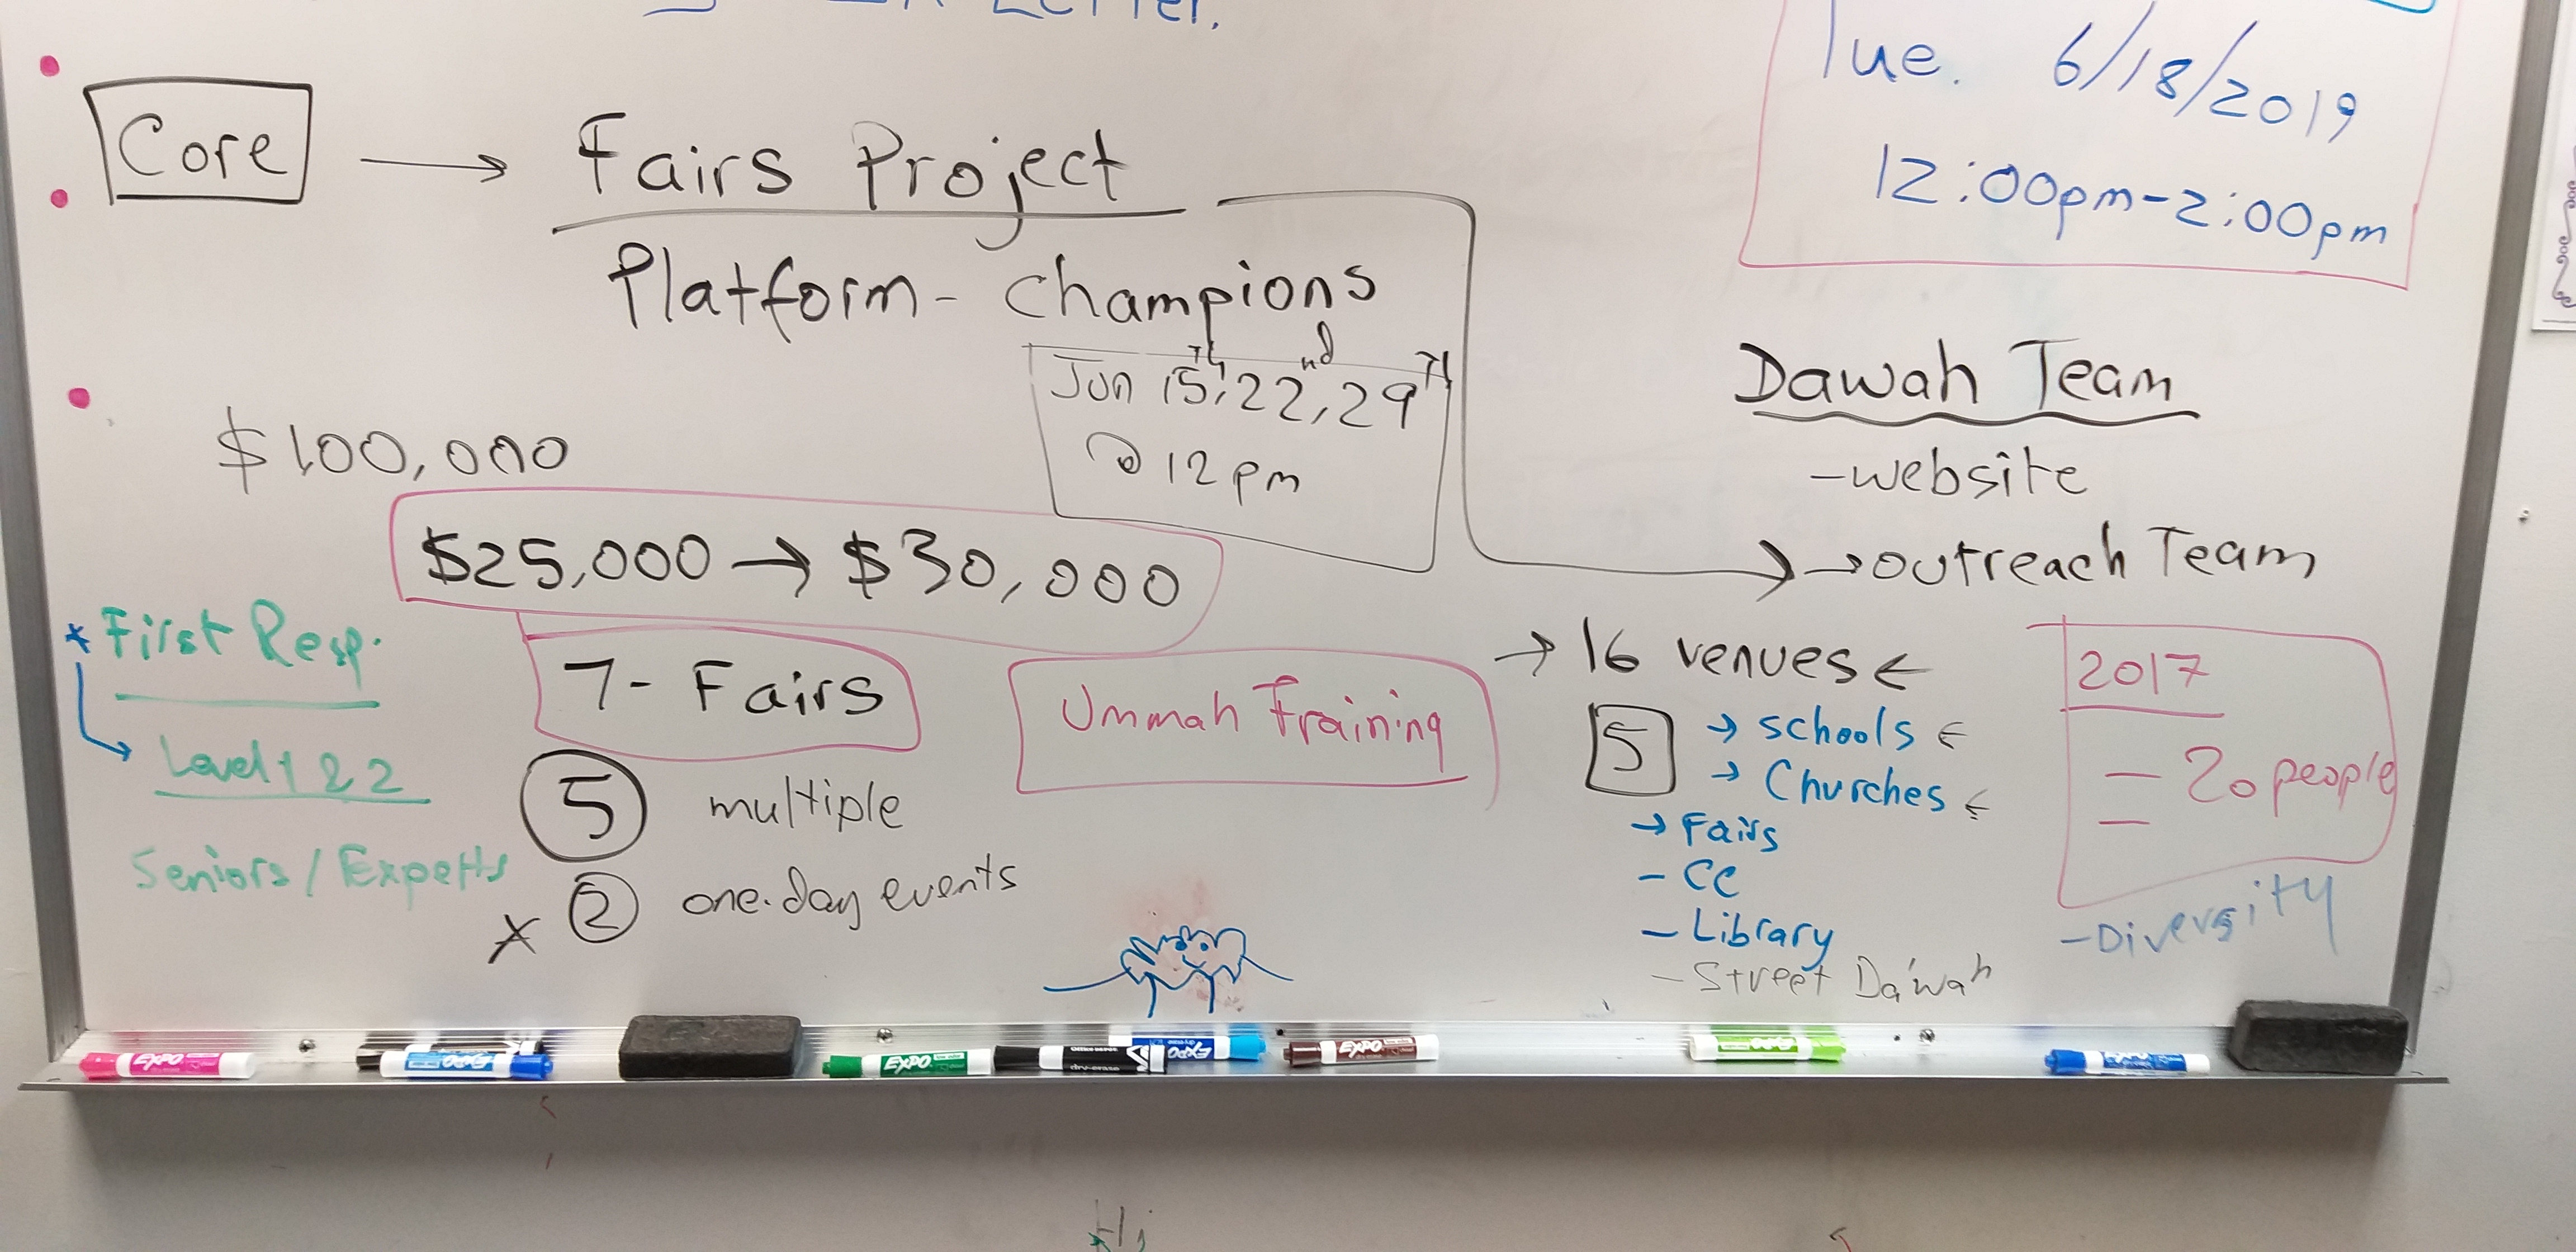 Letter.
Tue. 6/18/2019
12:00pm-2:00pm
Core → Fairs Project
Platform - Champions
Jun 15th, 22nd, 29th
@ 12 pm
$100,000
$25,000 → $30,000
7- Fairs
5 multiple
* 2 one-day events
* First Resp.
Level 1 & 2
Seniors / Experts
Ummah Training
Dawah Team
- website
→ outreach Team
→ 16 venues ←
5 → schools ←
→ Churches ←
→ Fairs
- CC
- Library
- Street Da'wah
2017
- 20 people
-
- Diversity
EXPO
EXPO
EXPO
dry-erase
EXPO
EXPO
EXPO
EXPO
Hi